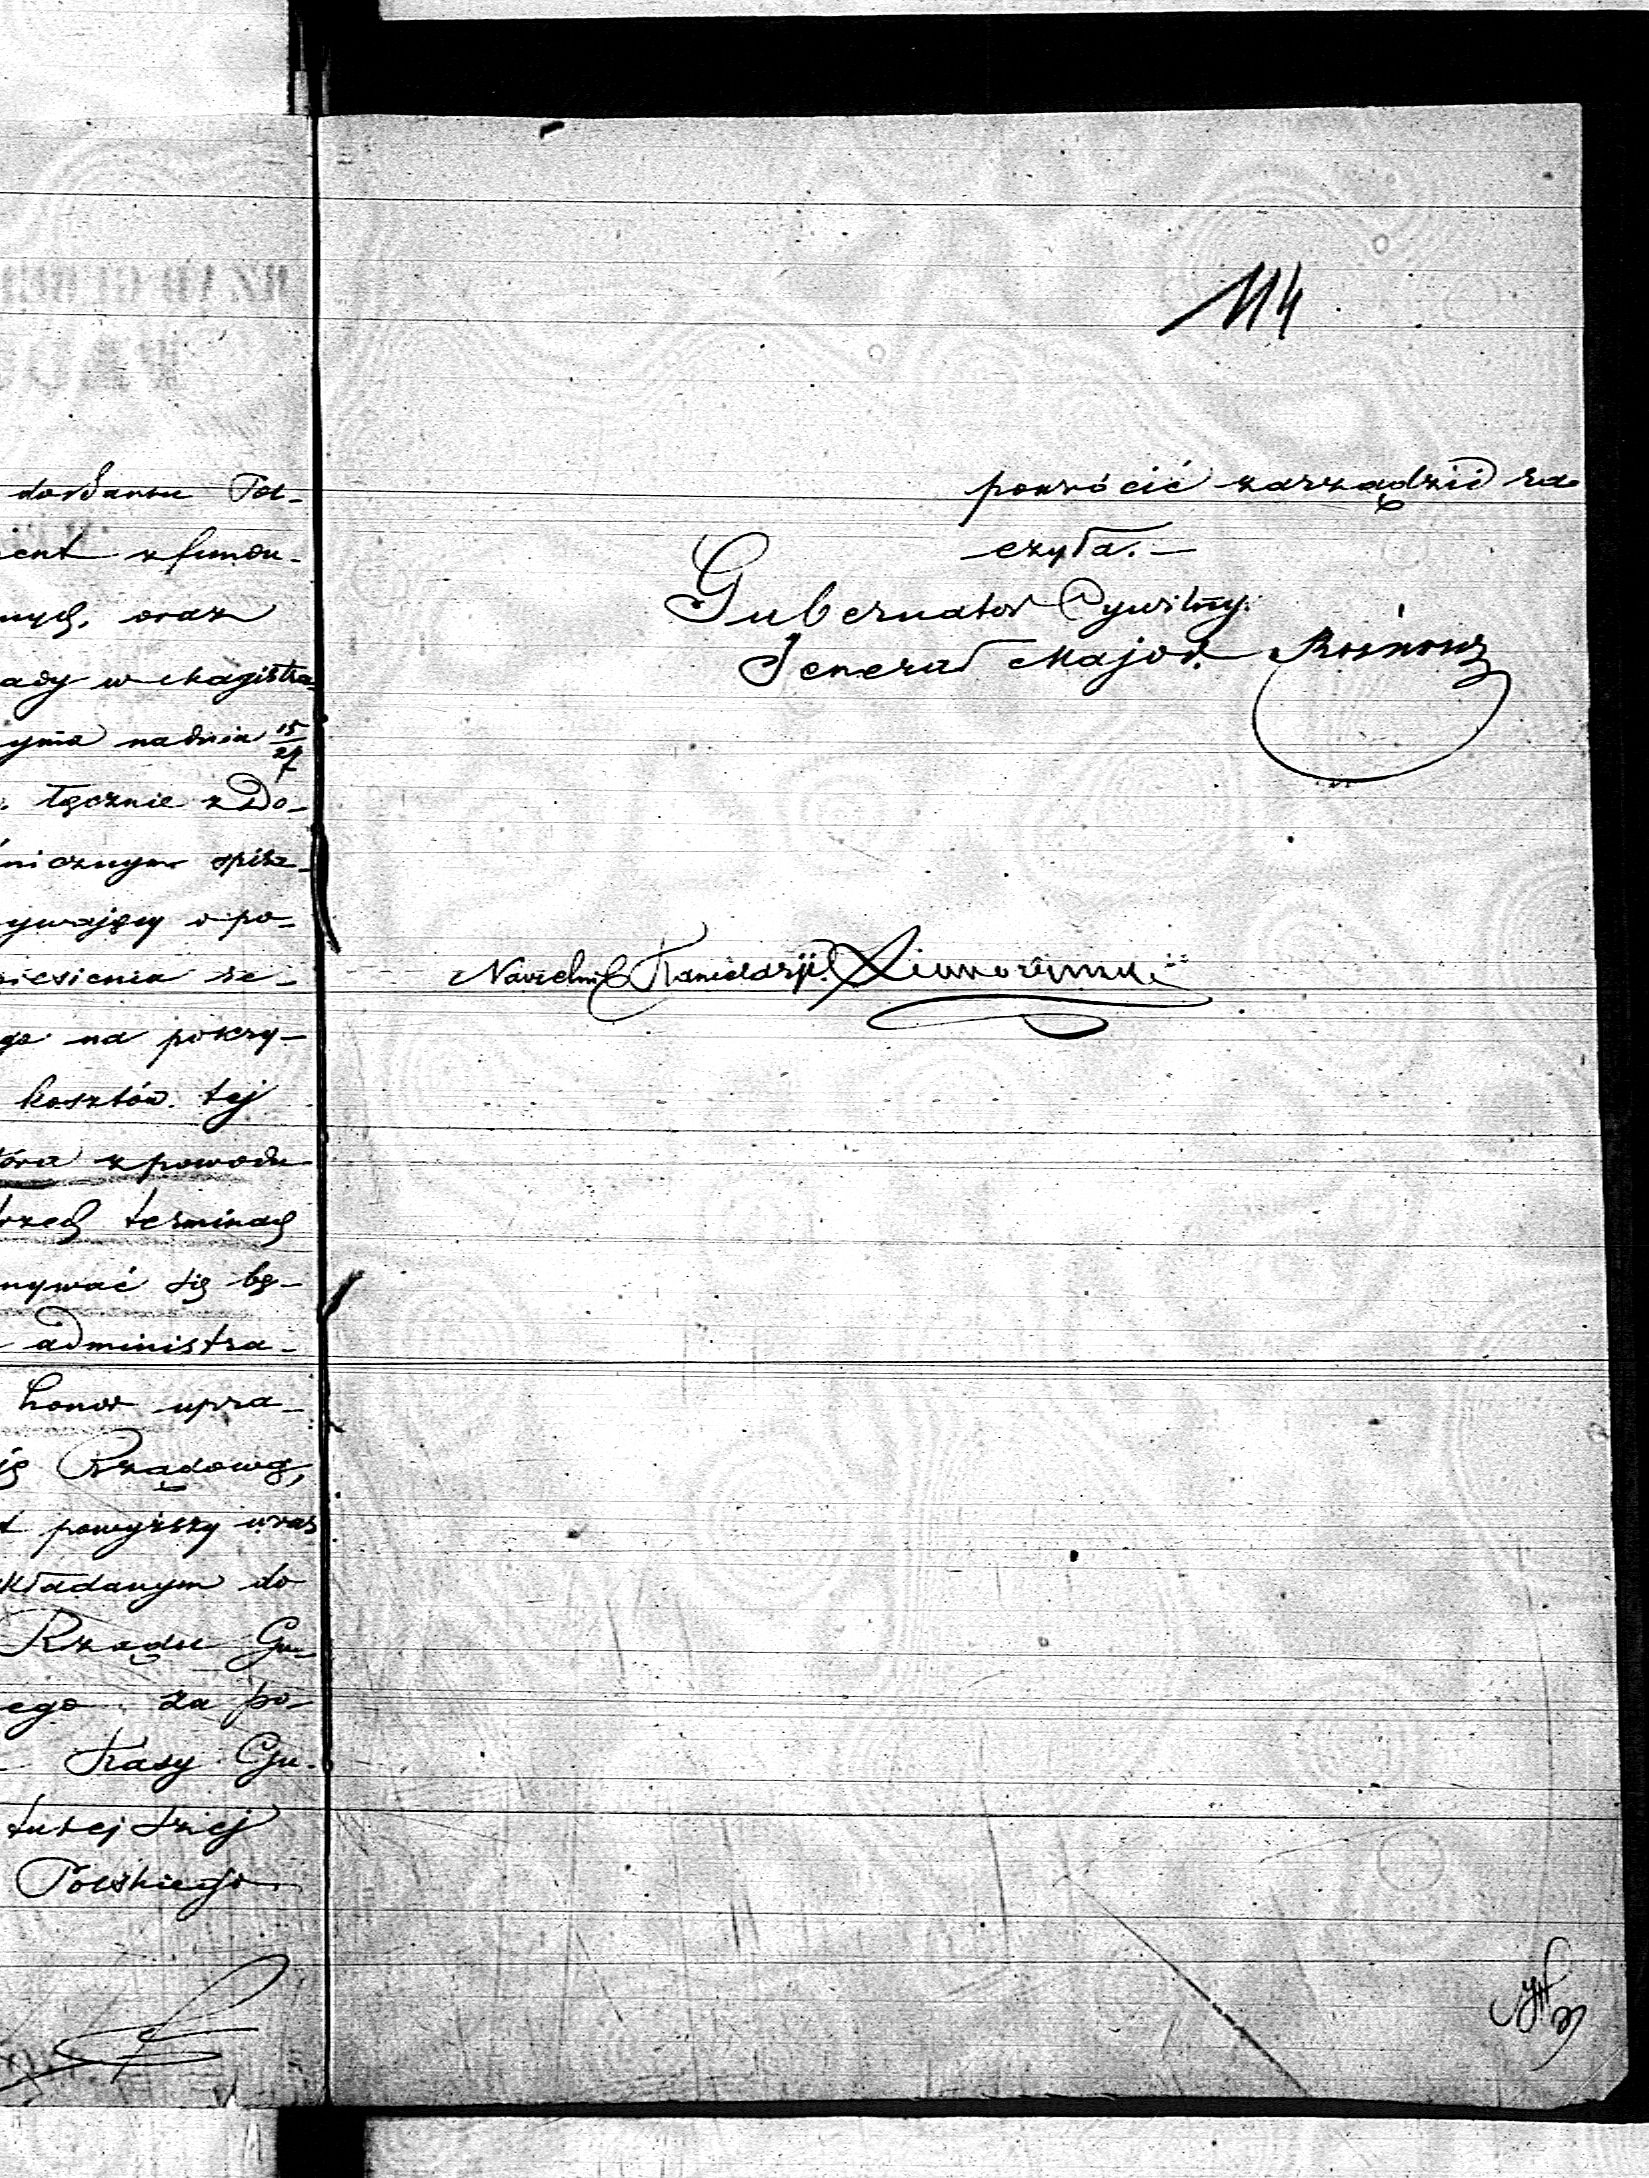 dodania Pol-
z fundu-
nych, oraz
ady w Magistra-
yma na dnia 15/27
łącznie z do-
nicznym opisa-
ywający o po-
niesienia se-
go na pokry-
kosztów tej
tóra z powodu
trzech terminach
nywać się bę-
administra-
honor upra-
ię Rządową,
powyższy wraz
kładanym do
Rządu Gu-
ego za po-
Kasy Gu-
tutejszej
Polskiego
114
powrócić zarządzić ra-
czyła.-
Gubernator Cywilny
Jenerał Major
Naczelnik Kancelarji